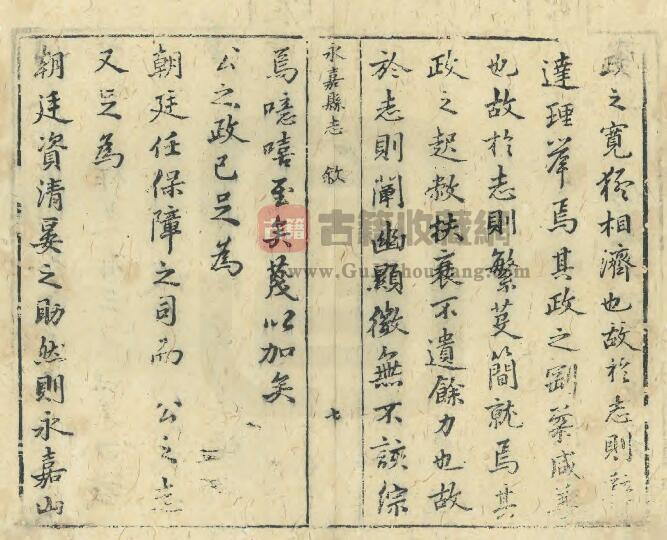 政之寬猛相濟也故於志則
達理舉焉其政之剛柔咸
也故於志則繁芟簡就焉其
政之起敝扶衰不遺餘力也故
於志則闡幽顯微無不該綜
永嘉縣志 敘 七
焉噫嘻至矣蔑以加矣
公之政已足為
朝廷任保障之司而 公之志
又足為
朝廷資清晏之助然則永嘉山
古籍 古籍收藏網
www.GuJiShouCang.com